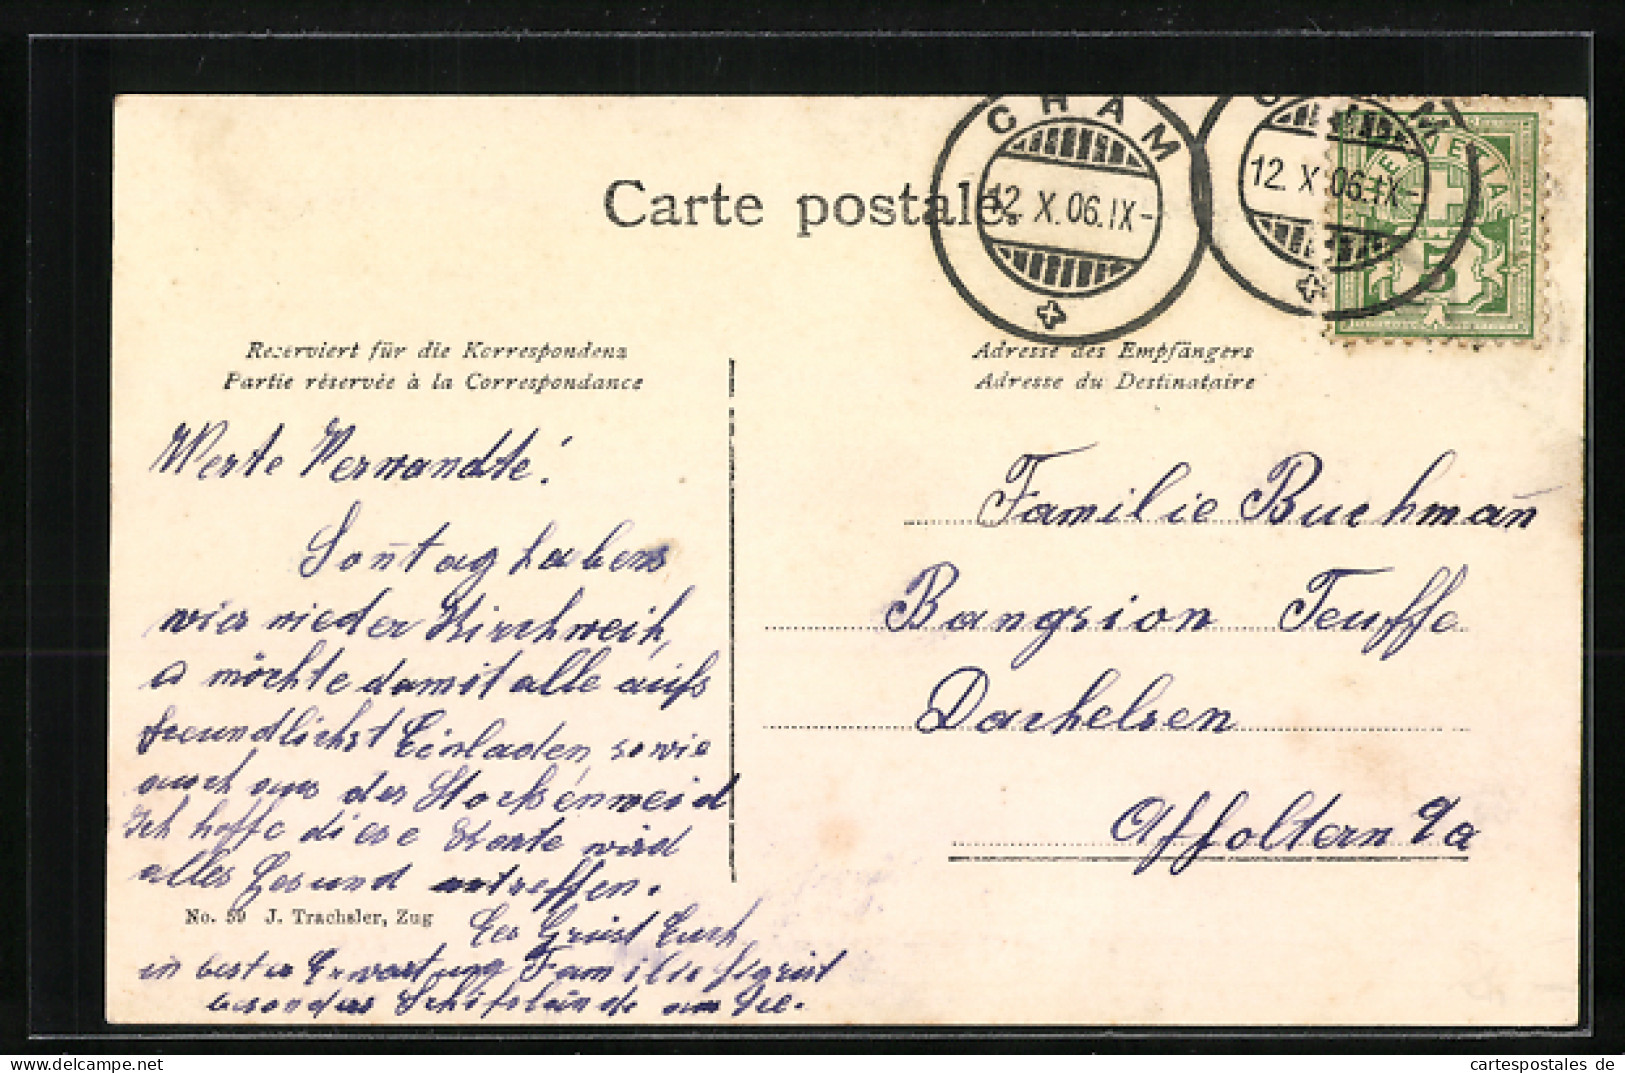 CHAM
12. X. 06. IX-
12. X. 06. IX-
HELVETIA
Carte postale.
Reserviert für die Korrespondenz
Partie réservée à la Correspondance
Adresse des Empfängers
Adresse du Destinataire
Werte Verwandte!
Son̄tag haben
wir wieder Kirchweih,
möchte damit alle aufs
freundlichst Einladen, sowie
auch aus der Stockenweid
Ich hoffe diese Karte wird
alles Gesund antreffen.
Es Grüst Euch
in bester Erwartung Familie
besonders am See.
Familie Buchman̄
Bangsion Teuffe
Dachelsen
Affoltern a/a
No. 59 J. Trachsler, Zug
cartespostales de